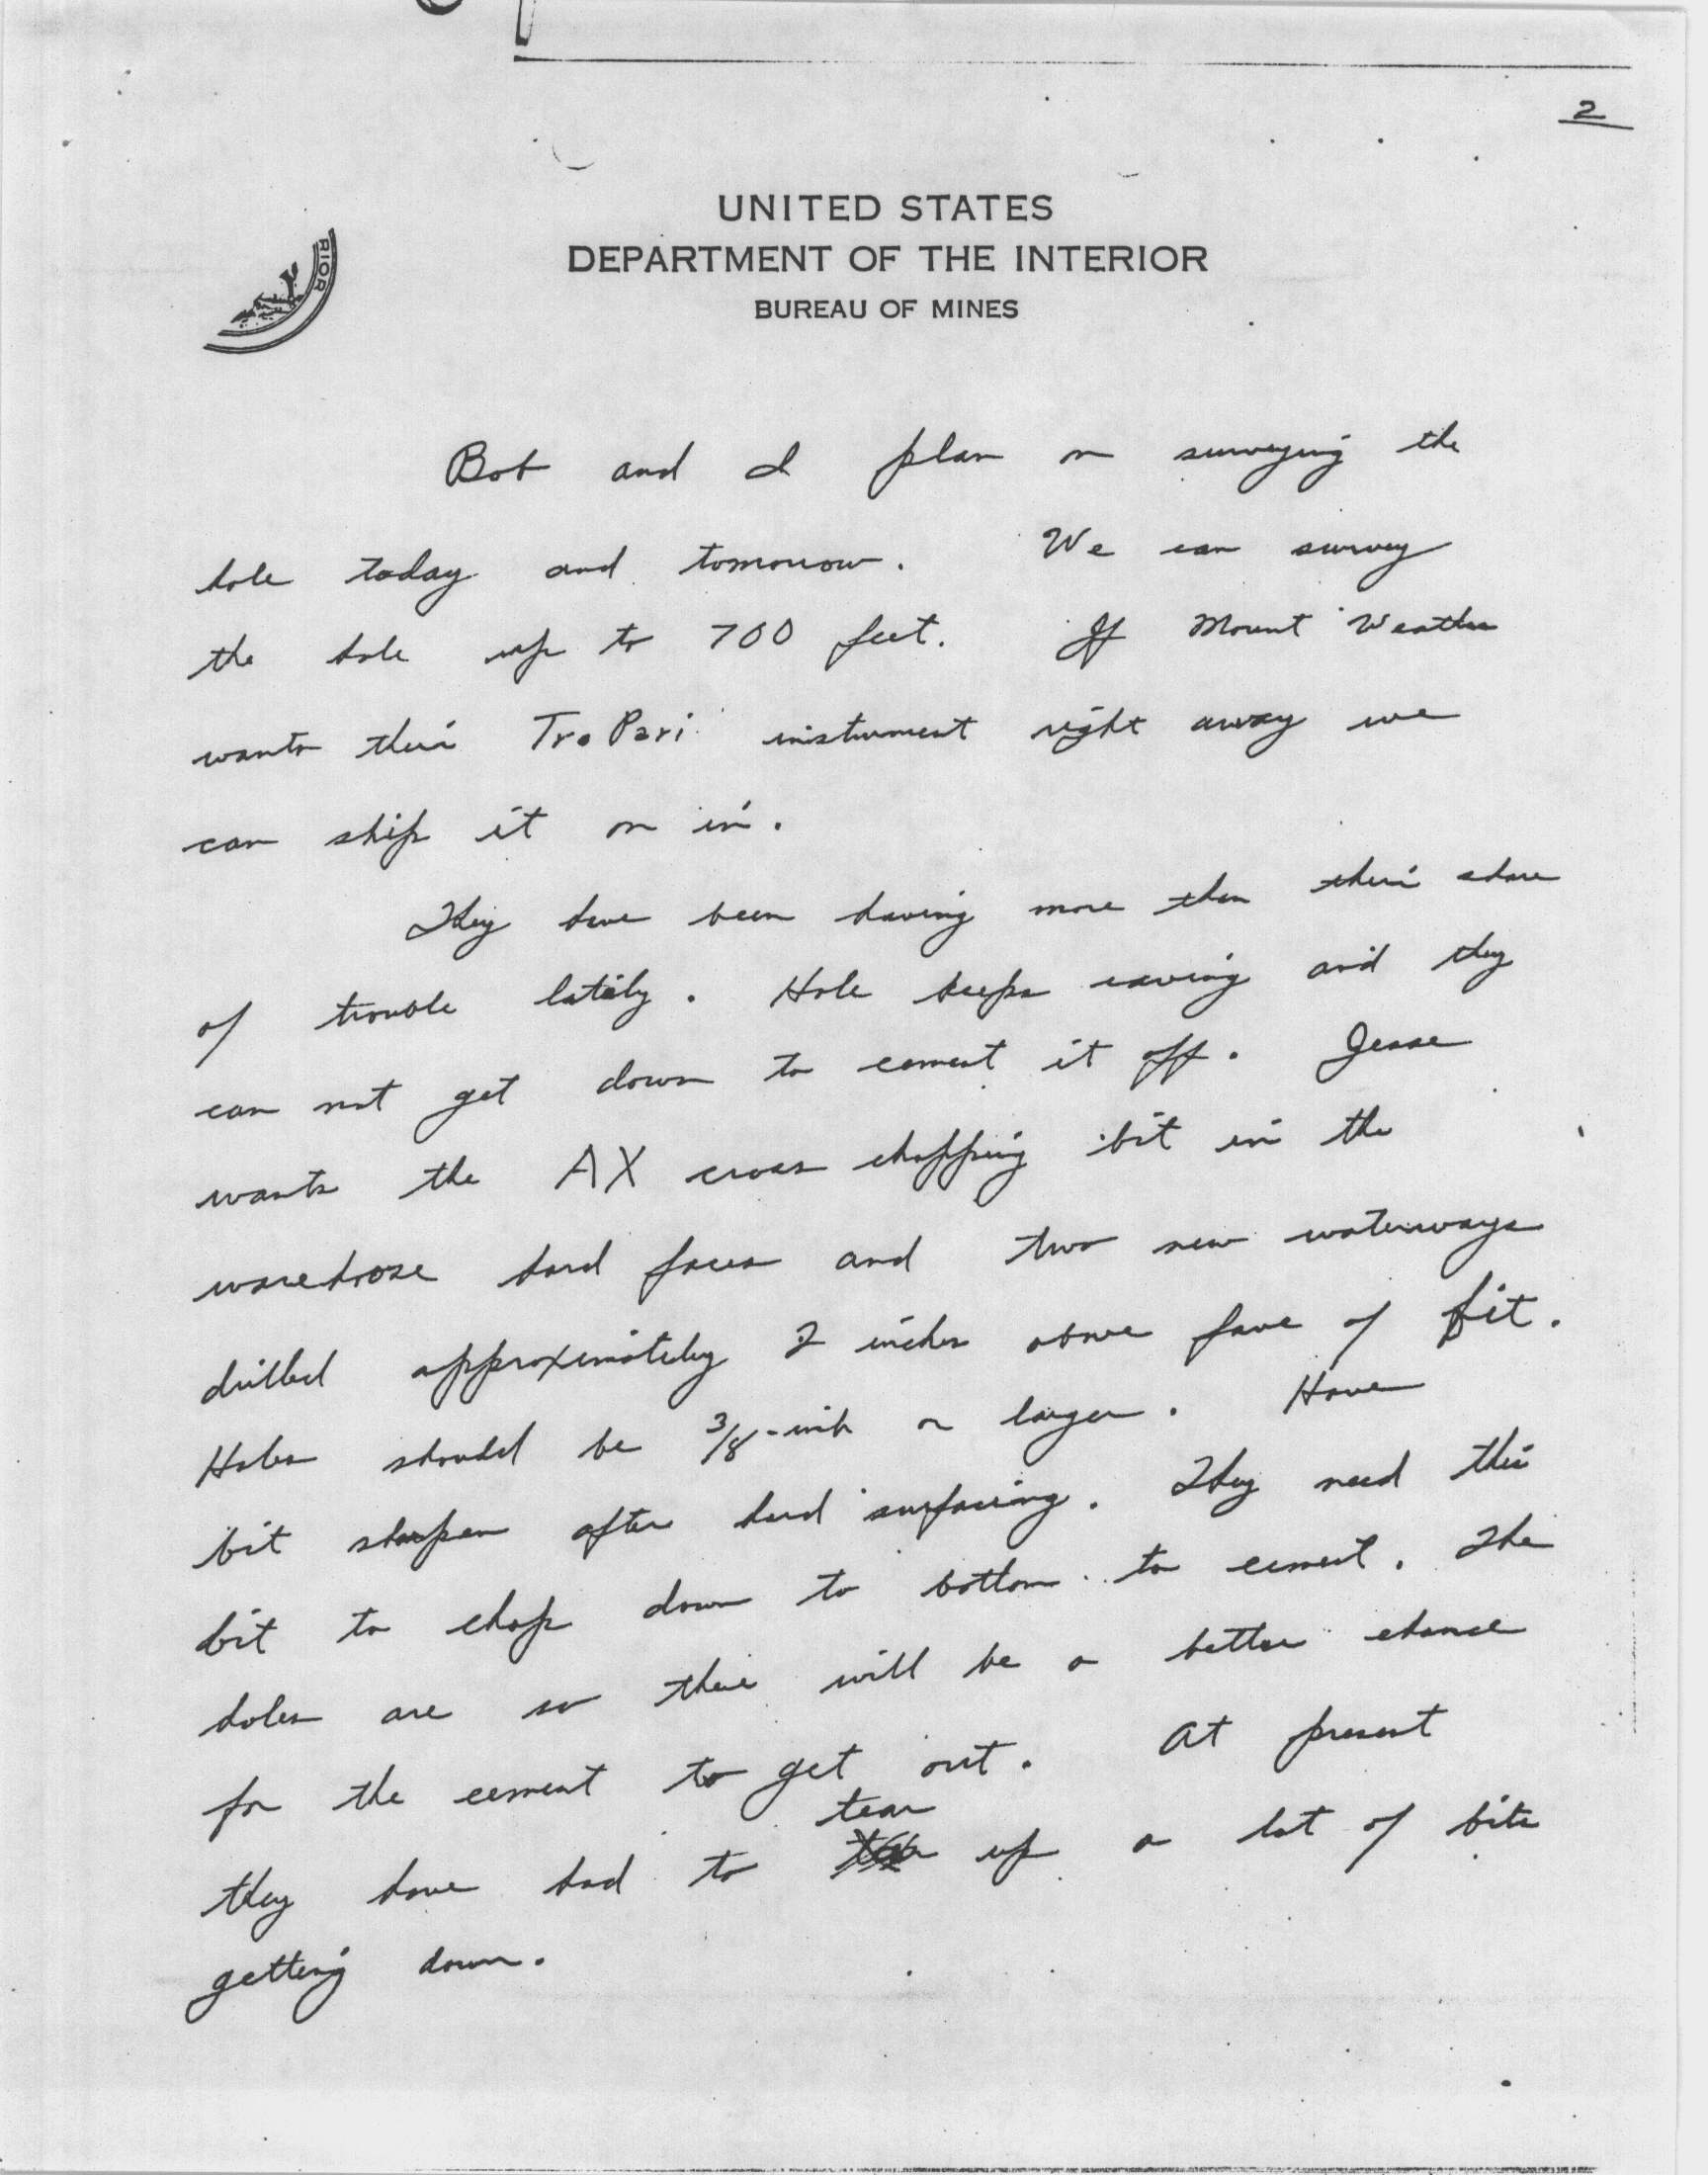 2
UNITED STATES
DEPARTMENT OF THE INTERIOR
BUREAU OF MINES
RIOR
Bob and I plan on surveying the
hole today and tomorrow. We can survey
the hole up to 700 feet. If Mount Weather
wants their Tro Pari instrument right away we
can ship it on in.
They have been having more than their share
of trouble lately. Hole keeps caving and they
can not get down to cement it off. Jesse
wants the AX cross chopping bit in the
warehouse hard faces and two new waterways
drilled approximately 2 inches above face of bit.
Holes should be 3/8-inch or larger. Have
bit sharpen after hard surfacing. They need this
bit to chop down to bottom to cement. The
holes are so there will be a better chance
for the cement to get out. At present
they have had to tear up a lot of bits
getting down.